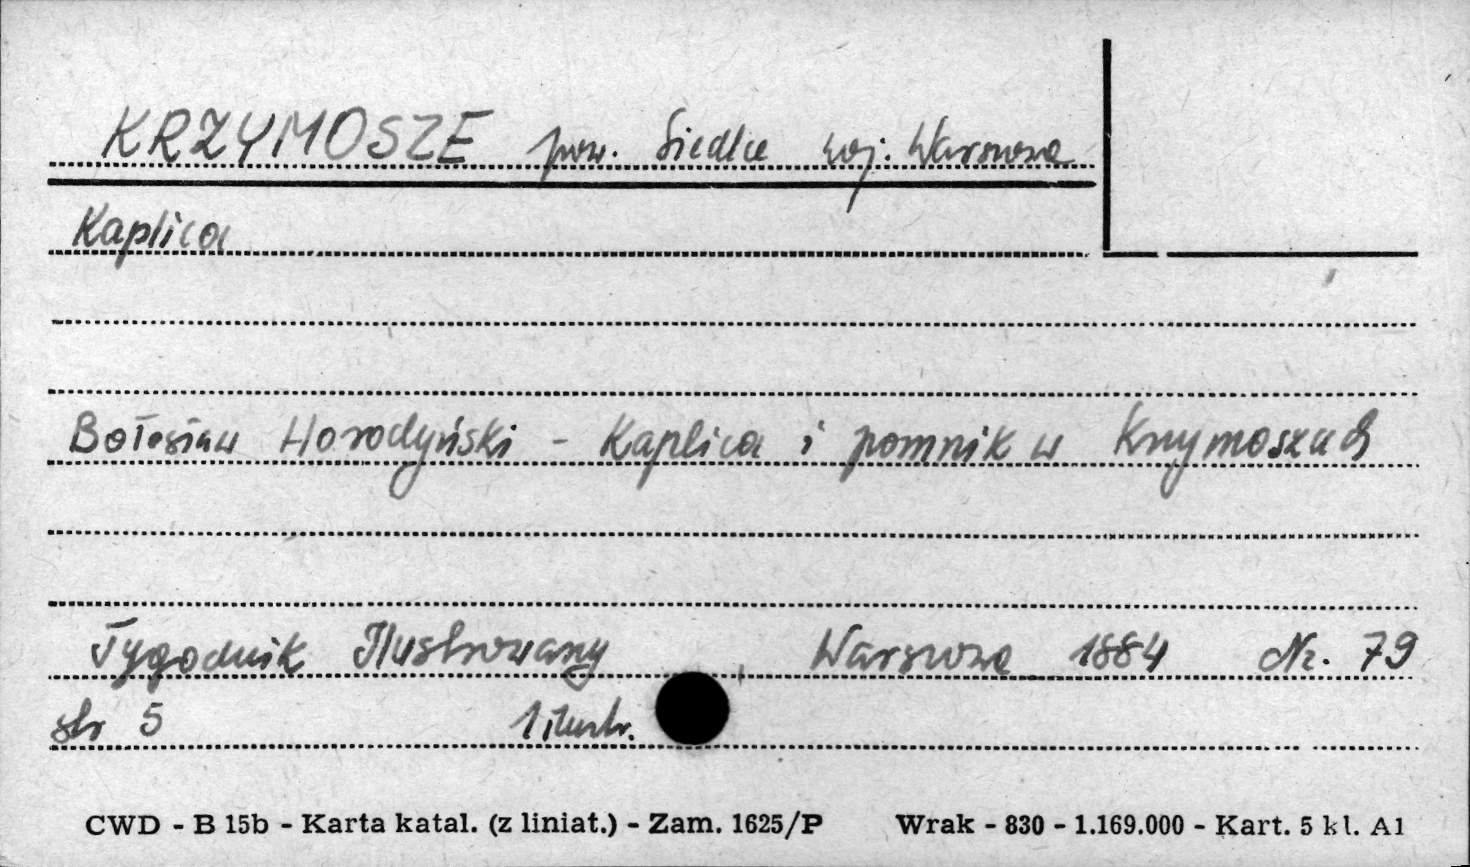 KRZYMOSZE pow. Siedlce woj. Warszawa
Kaplica
Bolesław Horodyński - Kaplica i pomnik w Krzymoszach
Tygodnik Ilustrowany Warszawa 1884 Nr. 79
str 5 1 ilustr.
CWD - B 15b - Karta katal. (z liniat.) - Zam. 1625/P Wrak - 830 - 1.169.000 - Kart. 5 kl. A1